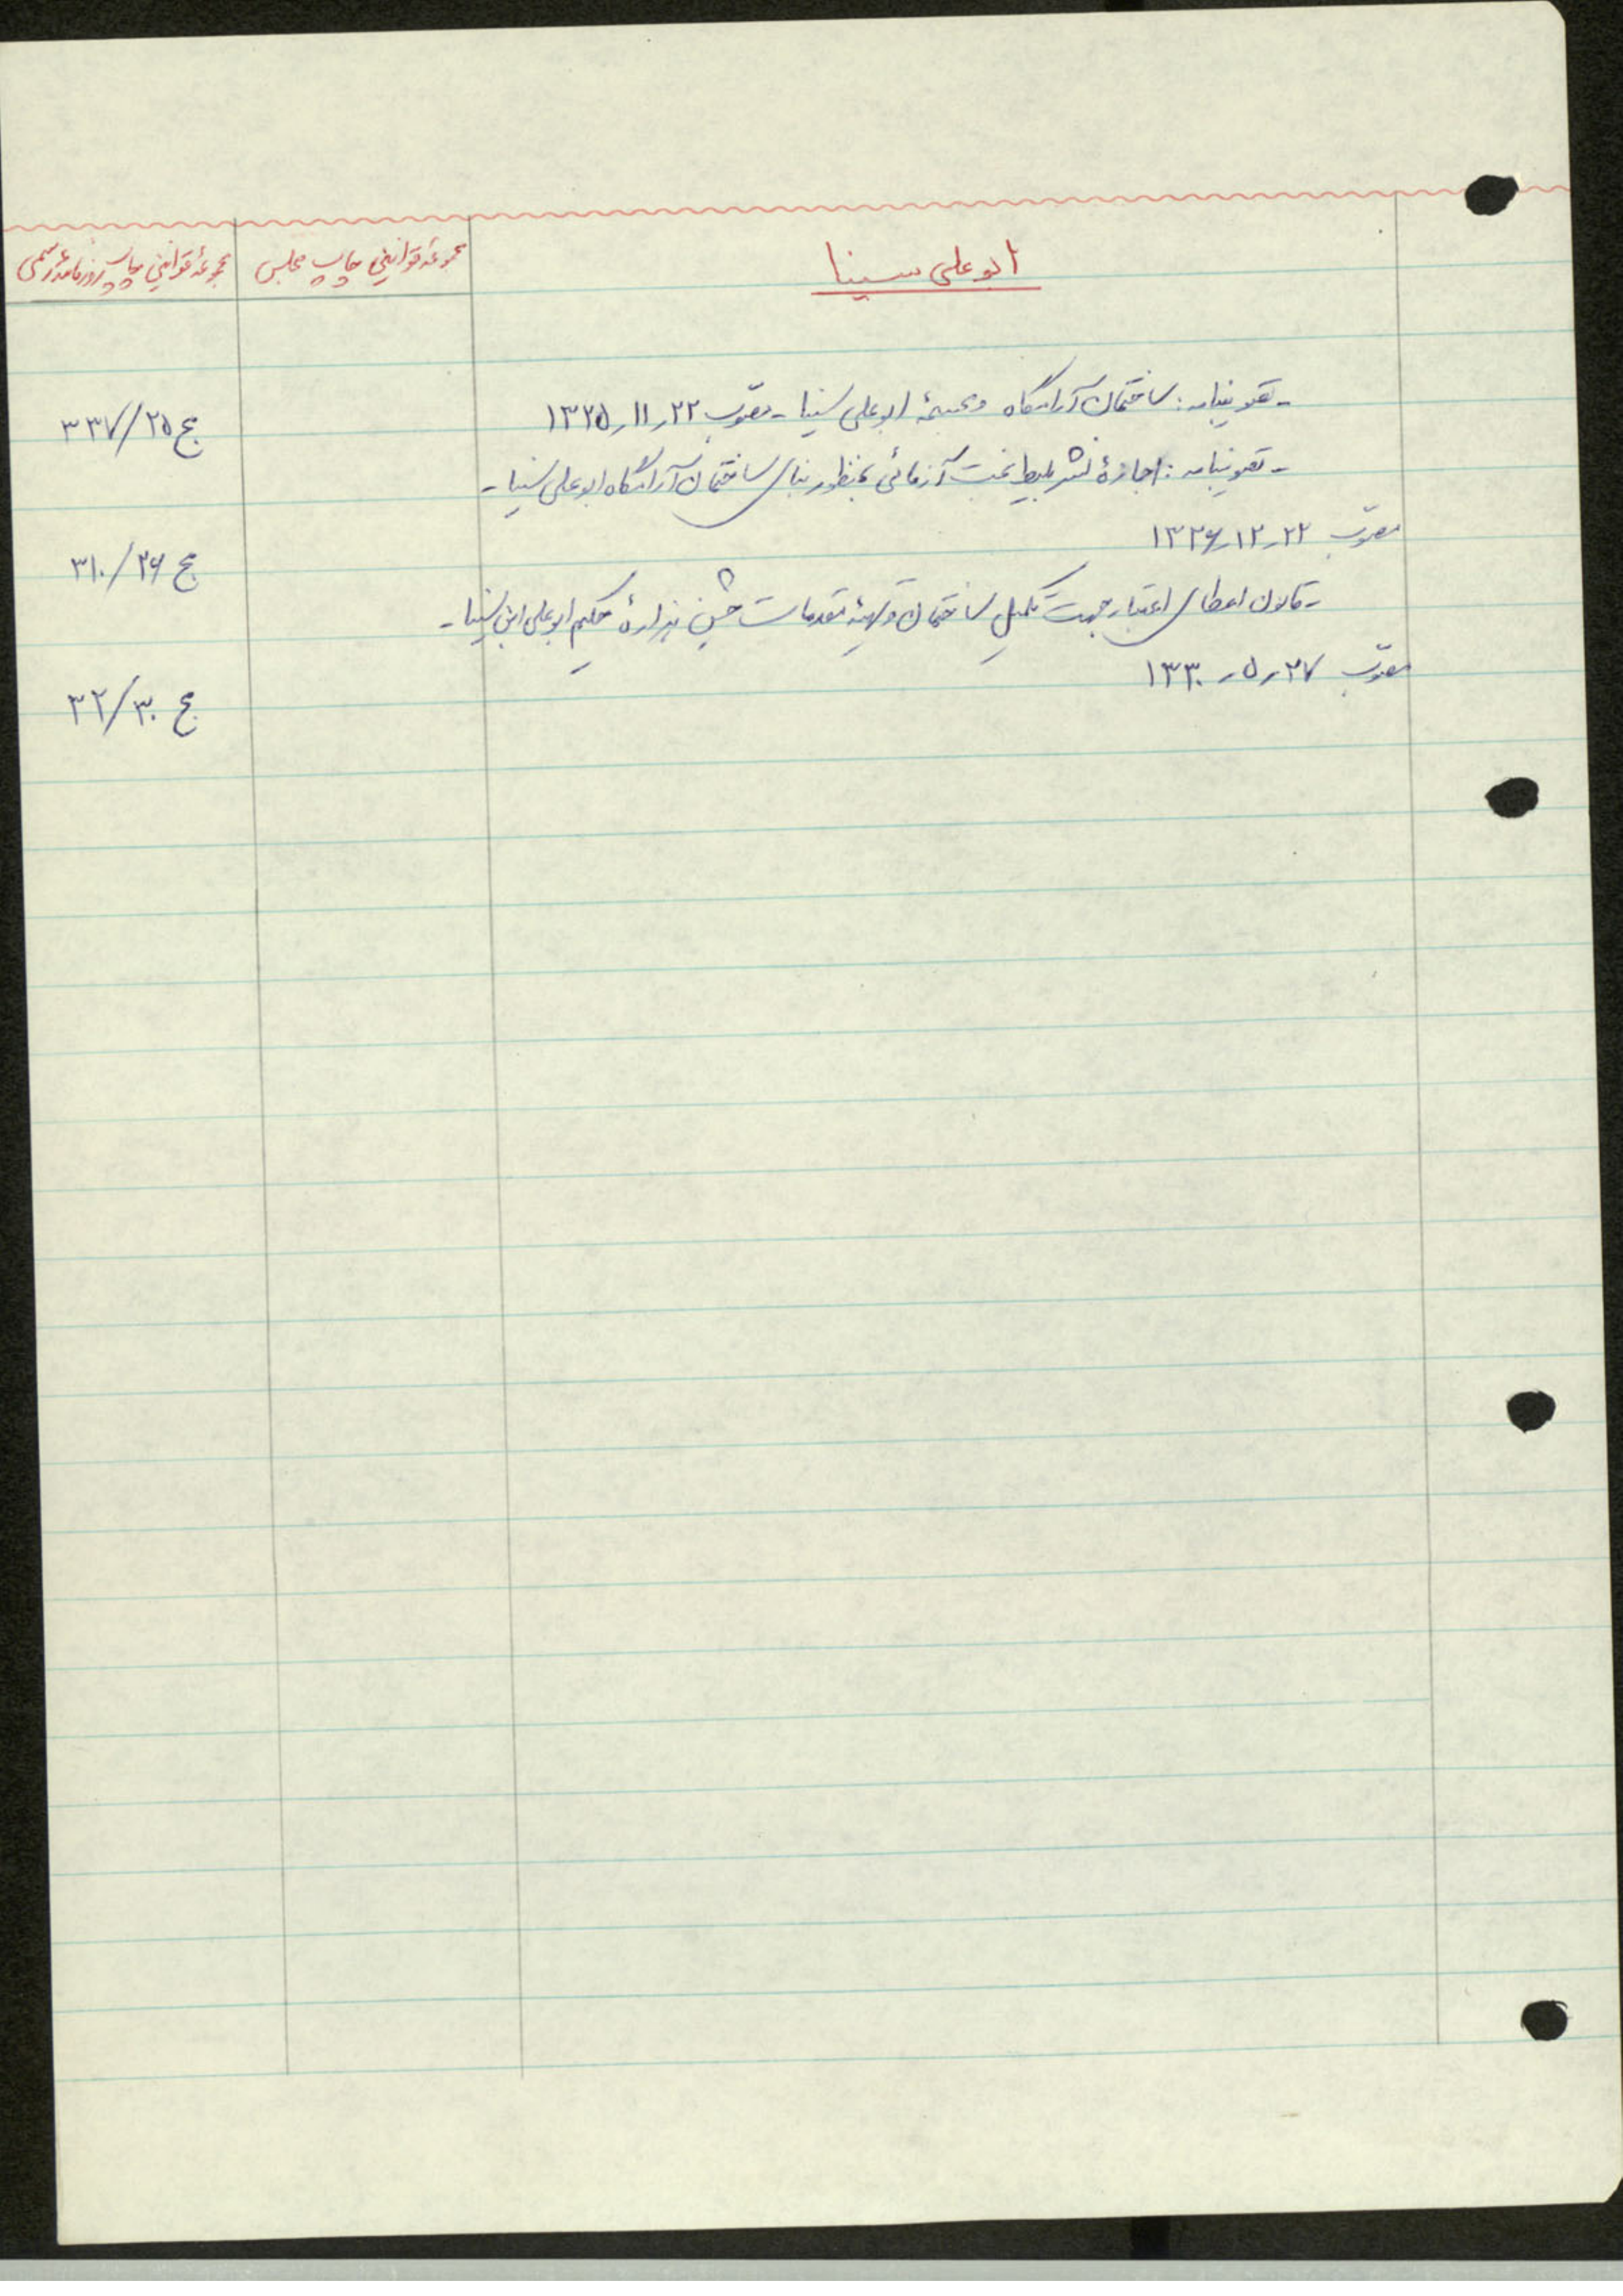 ابوعلی سینا
مجموعهٔ قوانین چاپ مجلس
مجموعهٔ قوانین چاپ روزنامهٔ رسمی
- تصویبنامه: ساختمان آرامگاه و مجسمهٔ ابوعلی سینا - مصوّب ۲۲ر۱۱ر۱۳۲۵
ج ۲۵/ ۳۳۷
- تصویبنامه: اجازهٔ نشر بلیط بخت آزمائی بمنظور بنای ساختمان آرامگاه ابوعلی سینا -
مصوّب ۲۲ر۱۲ر۱۳۲۶
ج ۲۶/ ۳۱۰
- قانون اعطای اعتبار جهت تکمیل ساختمان و تهیهٔ مقدمات جشن هزارهٔ حکیم ابوعلی ابن سینا -
مصوّب ۲۷ر۵ر۱۳۳۰
ج ۳۰/ ۳۲